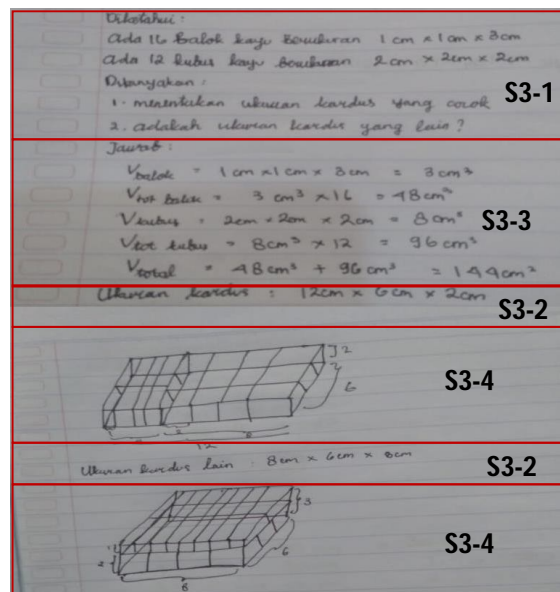 Diketahui :
Ada 16 Balok kayu berukuran 1 cm x 1 cm x 3 cm
Ada 12 kubus kayu berukuran 2 cm x 2 cm x 2 cm
Ditanyakan :
1. menentukan ukuran kardus yang cocok
S3-1
2. adakah ukuran kardus yang lain ?
Jawab :
Vbalok = 1 cm x 1 cm x 3 cm = 3 cm³
Vtot balok = 3 cm³ x 16 = 48 cm³
Vkubus = 2cm x 2cm x 2cm = 8 cm³
S3-3
Vtot kubus = 8cm³ x 12 = 96 cm³
Vtotal = 48 cm³ + 96 cm³ = 144 cm³
Ukuran kardus : 12cm x 6cm x 2cm
S3-2
2
6
S3-4
12
Ukuran kardus lain : 8cm x 6cm x
S3-2
3
6
S3-4
2
8